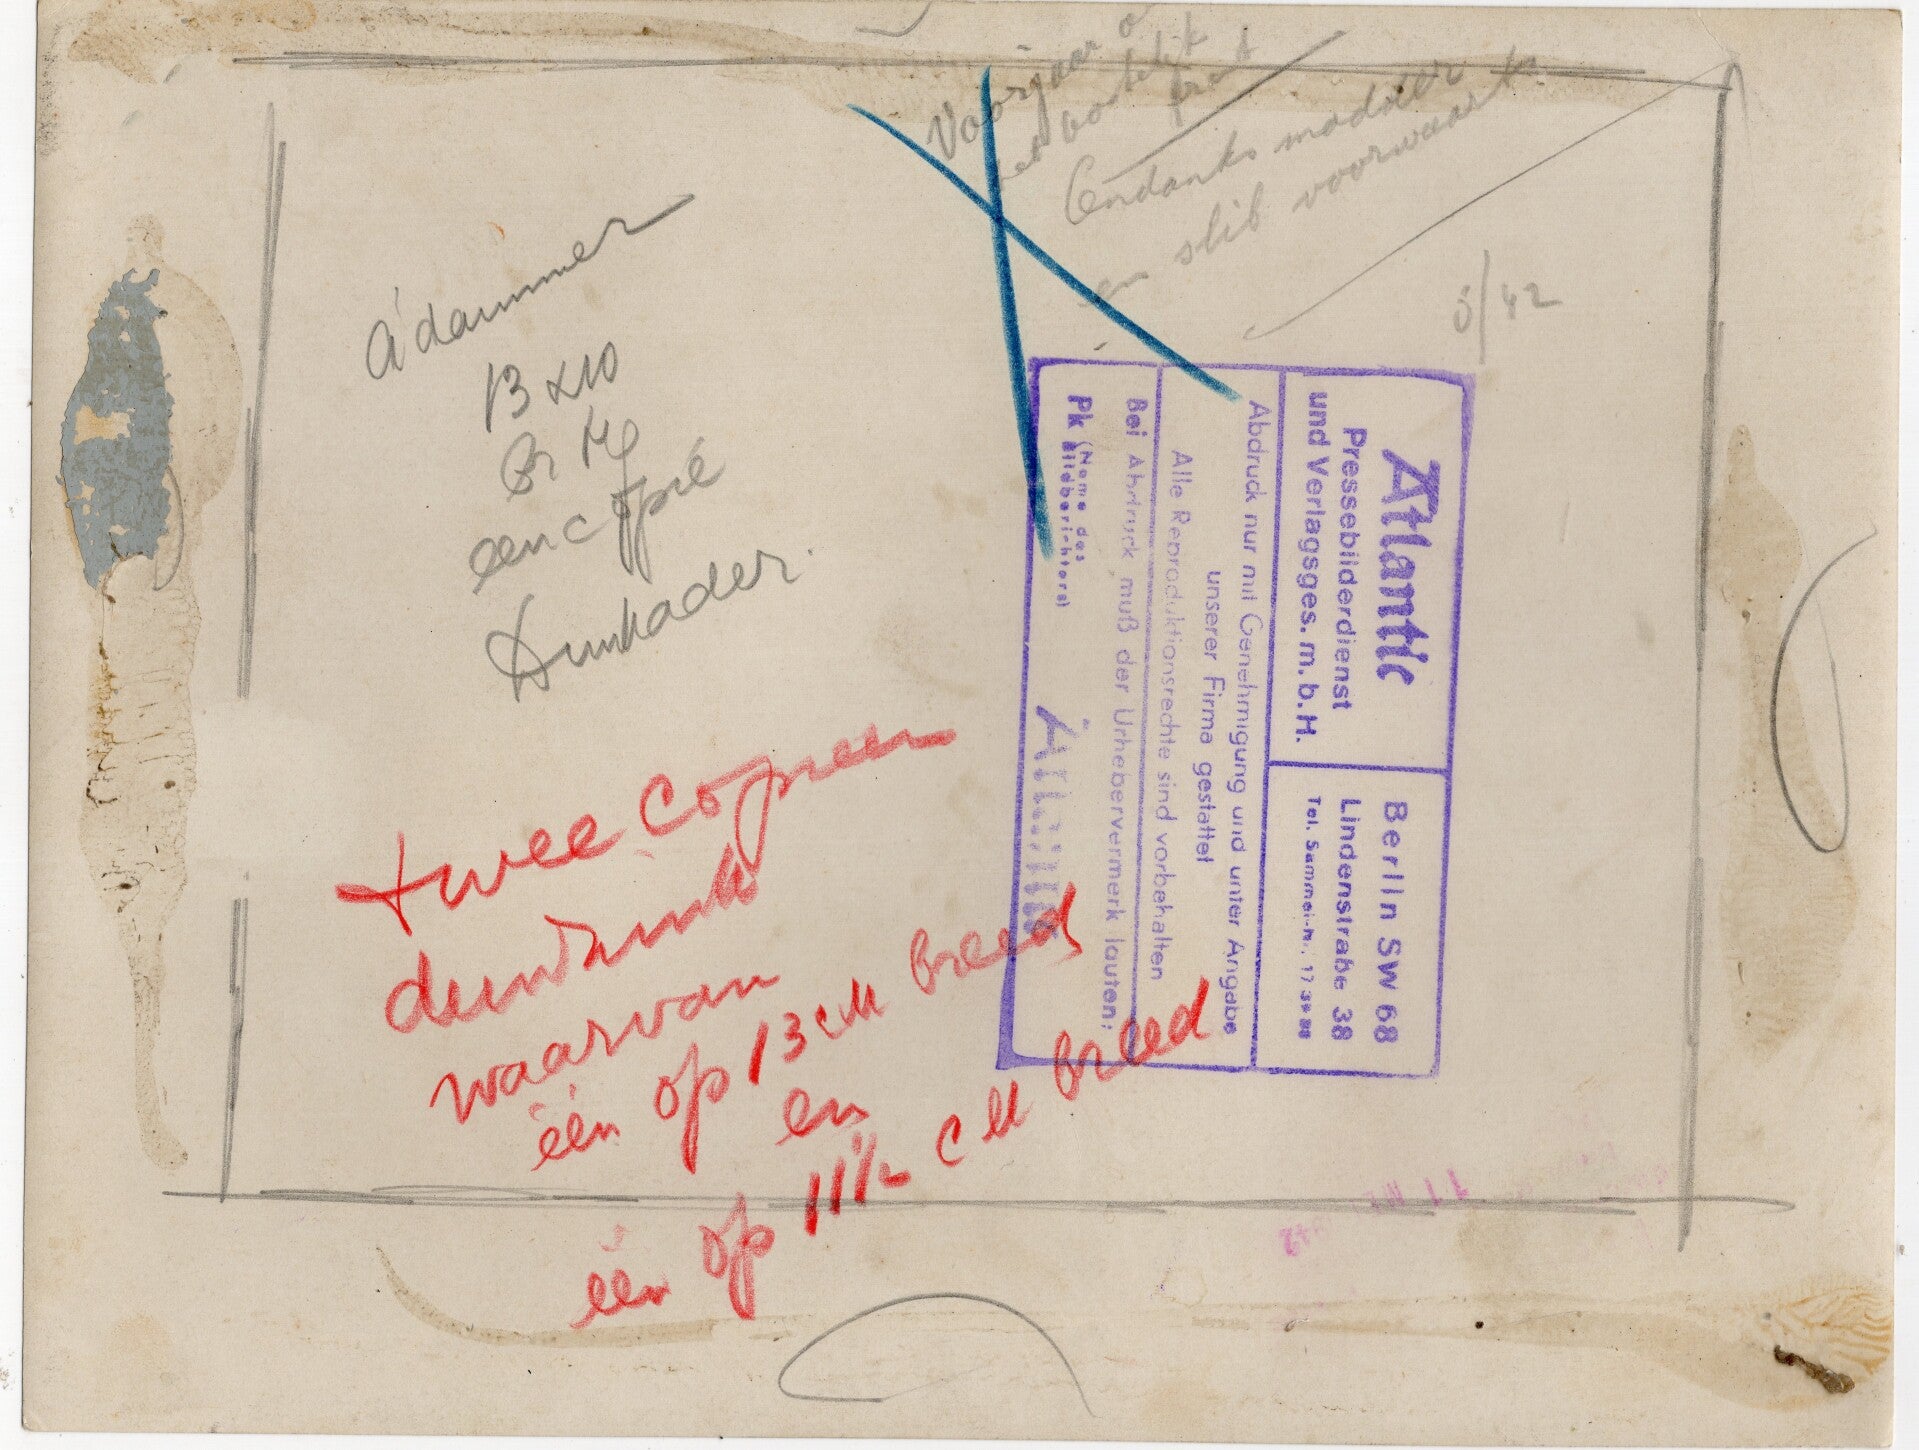 Voorjaar
front
Ondanks modder
en slib voorwaarts
5/42
A'dammer
13 x 10
een copie
twee copieen
waarvan
één op 13 cM breed
en
één op 11½ cM breed
Atlantic
Pressebilderdienst
und Verlagsges.m.b.H.
Berlin SW 68
Lindenstraße 38
Tel. Sammel-Nr. 17 39 88
Abdruck nur mit Genehmigung und unter Angabe
unserer Firma gestattet
Alle Reproduktionsrechte sind vorbehalten
Bei Abdruck muß der Urhebervermerk lauten:
Pk (Name des Bildberichters)
Atlantic